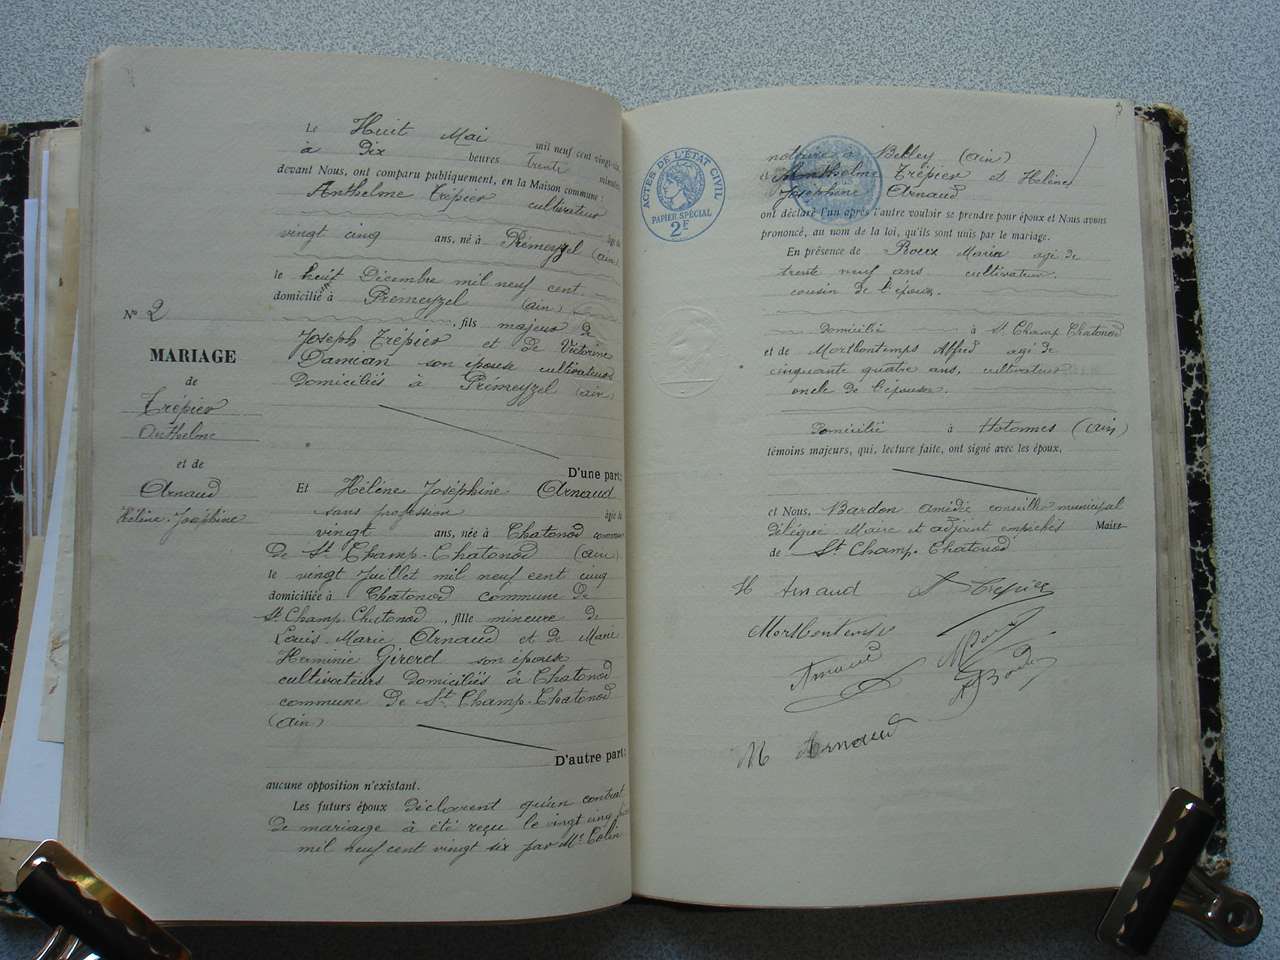 Le Huit Mai mil neuf cent vingt-six
à Dix heures trente minutes
devant Nous, ont comparu publiquement, en la Maison commune:
Anthelme Trépier cultivateur
âgé de
vingt cinq ans, né à Prémeyzel (ain)
le huit Décembre mil neuf cent
domicilié à Prémeyzel (ain)
, fils majeur de
Joseph Trépier et de Victorine
Damian son épouse cultivateurs
Domiciliés à Prémeyzel (ain)
D'une part;
Nº 2
MARIAGE
de
Trépier
Anthelme
et de
Arnaud
Hélène Joséphine
Et Hélène Joséphine Arnaud
sans profession âgée de
vingt ans, née à Chatonod commune
De St Champ-Chatonod (ain)
le vingt Juillet mil neuf cent cinq
domiciliée à Chatonod commune de
St Champ-Chatonod, fille mineure de
Louis Marie Arnaud et de Marie
Herminie Girerd son épouse
cultivateurs domiciliés à Chatonod
commune De St Champ-Chatonod
(ain)
D'autre part;
aucune opposition n'existant.
Les futurs époux Déclarent qu'un contrat
de mariage à été reçu le vingt cinq
mil neuf cent vingt six par Me Colin
notaire à Belley (ain)
Anthelme Trépier et Hélène
Joséphine Arnaud
ACTES DE L'ÉTAT CIVIL
PAPIER SPÉCIAL
2F
ont déclaré l'un après l'autre vouloir se prendre pour époux et Nous avons
prononcé, au nom de la loi, qu'ils sont unis par le mariage.
En présence de Roux Maria agé de
trente neuf ans cultivateur
cousin de l'époux.
Domicilié à St Champ Chatonod
et de Mortbontemps Alfred agé de
cinquante quatre ans, cultivateur
oncle de l'épouse.
Domicilié à Hotonnes (ain)
témoins majeurs, qui, lecture faite, ont signé avec les époux,
et Nous, Bardon amédée conseiller municipal
Délégué Maire et adjoint empêchés Maire
de St Champ-Chatonod
H Arnaud Trépier
Mortbontemps
Arnaud
M Arnaud